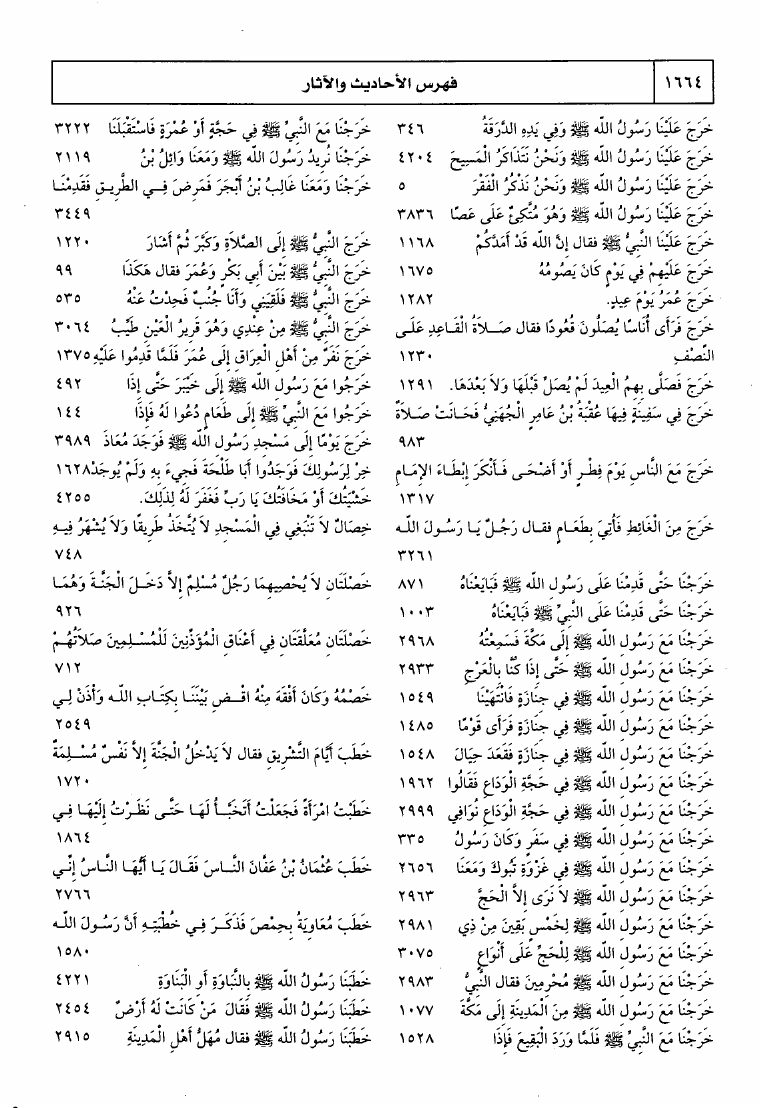 ١٦٦٤
فهرس الأحاديث والآثار
خَرَجَ عَلَيْنَا رَسُولُ اللّه ﷺ وَفِي يَدِهِ الدَّرَقَةُ ٣٤٦
خَرَجَ عَلَيْنَا رَسُولُ اللّه ﷺ وَنَحْنُ نَتَذَاكَرُ الْمَسِيحَ ٤٢٠٤
خَرَجَ عَلَيْنَا رَسُولُ اللّه ﷺ وَنَحْنُ نَذْكُرُ الْفَقْرَ ٥
خَرَجَ عَلَيْنَا رَسُولُ اللّه ﷺ وَهُوَ مُتَّكِئٌ عَلَى عَصًا ٣٨٣٦
خَرَجَ عَلَيْنَا النَّبِيُّ ﷺ فقال إنَّ اللّه قَدْ أَمَدَّكُمْ ١١٦٨
خَرَجَ عَلَيْهِمْ فِي يَوْمٍ كَانَ يَصُومُهُ ١٦٧٥
خَرَجَ عُمَرُ يَوْمَ عِيدٍ. ١٢٨٢
خَرَجَ فَرَأَى أُنَاسًا يُصَلُّونَ قُعُودًا فقال صَلاَةُ الْقَاعِدِ عَلَى
النِّصْفِ ١٢٣٠
خَرَجَ فَصَلَّى بِهِمُ الْعِيدَ لَمْ يُصَلِّ قَبْلَهَا وَلاَ بَعْدَهَا. ١٢٩١
خَرَجَ فِي سَفِينَةٍ فِيهَا عُقْبَةُ بْنُ عَامِرٍ الْجُهَنِيُّ فَحَانَتْ صَلاَةٌ
٩٨٣
خَرَجَ مَعَ النَّاسِ يَوْمَ فِطْرٍ أَوْ أَضْحَى فَأَنْكَرَ إِبْطَاءَ الإِمَامِ
١٣١٧
خَرَجَ مِنَ الْغَائِطِ فَأُتِيَ بِطَعَامٍ فقال رَجُلٌ يَا رَسُولَ اللّه
٣٢٦١
خَرَجْنَا حَتَّى قَدِمْنَا عَلَى رَسُولِ اللّه ﷺ فَبَايَعْنَاهُ ٨٧١
خَرَجْنَا حَتَّى قَدِمْنَا عَلَى النَّبِيِّ ﷺ فَبَايَعْنَاهُ ١٠٠٣
خَرَجْنَا مَعَ رَسُولِ اللّه ﷺ إِلَى مَكَّةَ فَسَمِعْتُهُ ٢٩٦٨
خَرَجْنَا مَعَ رَسُولِ اللّه ﷺ حَتَّى إِذَا كُنَّا بِالْعَرْجِ ٢٩٣٣
خَرَجْنَا مَعَ رَسُولِ اللّه ﷺ فِي جَنَازَةٍ فَانْتَهَيْنَا ١٥٤٩
خَرَجْنَا مَعَ رَسُولِ اللّه ﷺ فِي جَنَازَةٍ فَرَأَى قَوْمًا ١٤٨٥
خَرَجْنَا مَعَ رَسُولِ اللّه ﷺ فِي جَنَازَةٍ فَقَعَدَ حِيَالَ ١٥٤٨
خَرَجْنَا مَعَ رَسُولِ اللّه ﷺ فِي حَجَّةِ الْوَدَاعِ فَقَالُوا ١٩٦٢
خَرَجْنَا مَعَ رَسُولِ اللّه ﷺ فِي حَجَّةِ الْوَدَاعِ نُوَافِي ٢٩٩٩
خَرَجْنَا مَعَ رَسُولِ اللّه ﷺ فِي سَفَرٍ وَكَانَ رَسُولُ ٣٣٥
خَرَجْنَا مَعَ رَسُولِ اللّه ﷺ فِي غَزْوَةِ تَبُوكَ وَمَعَنَا ٢٦٥٦
خَرَجْنَا مَعَ رَسُولِ اللّه ﷺ لاَ نَرَى إِلاَّ الْحَجَّ ٢٩٦٣
خَرَجْنَا مَعَ رَسُولِ اللّه ﷺ لِخَمْسٍ بَقِينَ مِنْ ذِي ٢٩٨١
خَرَجْنَا مَعَ رَسُولِ اللّه ﷺ لِلْحَجِّ عَلَى أَنْوَاعٍ ٣٠٧٥
خَرَجْنَا مَعَ رَسُولِ اللّه ﷺ مُحْرِمِينَ فقال النَّبِيُّ ٢٩٨٣
خَرَجْنَا مَعَ رَسُولِ اللّه ﷺ مِنَ الْمَدِينَةِ إِلَى مَكَّةَ ١٠٧٧
خَرَجْنَا مَعَ النَّبِيِّ ﷺ فَلَمَّا وَرَدَ الْبَقِيعَ فَإِذَا ١٥٢٨
خَرَجْنَا مَعَ النَّبِيِّ ﷺ فِي حَجَّةٍ أَوْ عُمْرَةٍ فَاسْتَقْبَلَنَا ٣٢٢٢
خَرَجْنَا نُرِيدُ رَسُولَ اللّه ﷺ وَمَعَنَا وَائِلُ بْنُ ٢١١٩
خَرَجْنَا وَمَعَنَا غَالِبُ بْنُ أَبْجَرَ فَمَرِضَ فِي الطَّرِيقِ فَقَدِمْنَا
٣٤٤٩
خَرَجَ النَّبِيُّ ﷺ إِلَى الصَّلاَةِ وَكَبَّرَ ثُمَّ أَشَارَ ١٢٢٠
خَرَجَ النَّبِيُّ ﷺ بَيْنَ أَبِي بَكْرٍ وَعُمَرَ فقال هَكَذَا ٩٩
خَرَجَ النَّبِيُّ ﷺ فَلَقِيَنِي وَأَنَا جُنُبٌ فَحِدْتُ عَنْهُ ٥٣٥
خَرَجَ النَّبِيُّ ﷺ مِنْ عِنْدِي وَهُوَ قَرِيرُ الْعَيْنِ طَيِّبُ ٣٠٦٤
خَرَجَ نَفَرٌ مِنْ أَهْلِ الْعِرَاقِ إِلَى عُمَرَ فَلَمَّا قَدِمُوا عَلَيْهِ ١٣٧٥
خَرَجُوا مَعَ رَسُولِ اللّه ﷺ إِلَى خَيْبَرَ حَتَّى إِذَا ٤٩٢
خَرَجُوا مَعَ النَّبِيِّ ﷺ إِلَى طَعَامٍ دُعُوا لَهُ فَإِذَا ١٤٤
خَرَجَ يَوْمًا إِلَى مَسْجِدِ رَسُولِ اللّه ﷺ فَوَجَدَ مُعَاذَ ٣٩٨٩
خِرْ لِرَسُولِكَ فَوَجَدُوا أَبَا طَلْحَةَ فَجِيءَ بِهِ وَلَمْ يُوجَدْ ١٦٢٨
خَشْيَتُكَ أَوْ مَخَافَتُكَ يَا رَبِّ فَغَفَرَ لَهُ لِذَلِكَ. ٤٢٥٥
خِصَالٌ لاَ تَنْبَغِي فِي الْمَسْجِدِ لاَ يُتَّخَذُ طَرِيقًا وَلاَ يُشْهَرُ فِيهِ
٧٤٨
خَصْلَتَانِ لاَ يُحْصِيهِمَا رَجُلٌ مُسْلِمٌ إِلاَّ دَخَلَ الْجَنَّةَ وَهُمَا
٩٢٦
خَصْلَتَانِ مُعَلَّقَتَانِ فِي أَعْنَاقِ الْمُؤَذِّنِينَ لِلْمُسْلِمِينَ صَلاَتُهُمْ
٧١٢
خَصْمُهُ وَكَانَ أَفْقَهَ مِنْهُ اقْضِ بَيْنَنَا بِكِتَابِ اللّه وَأْذَنْ لِي
٢٥٤٩
خَطَبَ أَيَّامَ التَّشْرِيقِ فقال لاَ يَدْخُلُ الْجَنَّةَ إِلاَّ نَفْسٌ مُسْلِمَةٌ
١٧٢٠
خَطَبْتُ امْرَأَةً فَجَعَلْتُ أَتَخَبَّأُ لَهَا حَتَّى نَظَرْتُ إِلَيْهَا فِي
١٨٦٤
خَطَبَ عُثْمَانُ بْنُ عَفَّانَ النَّاسَ فَقَالَ يَا أَيُّهَا النَّاسُ إِنِّي
٢٧٦٦
خَطَبَ مُعَاوِيَةُ بِحِمْصَ فَذَكَرَ فِي خُطْبَتِهِ أَنَّ رَسُولَ اللّه
١٥٨٠
خَطَبَنَا رَسُولُ اللّه ﷺ بِالنَّبَاوَةِ أَوِ الْبَنَاوَةِ ٤٢٢١
خَطَبَنَا رَسُولُ اللّه ﷺ فَقَالَ مَنْ كَانَتْ لَهُ أَرْضٌ ٢٤٥٤
خَطَبَنَا رَسُولُ اللّه ﷺ فقال مُهَلُّ أَهْلِ الْمَدِينَةِ ٢٩١٥